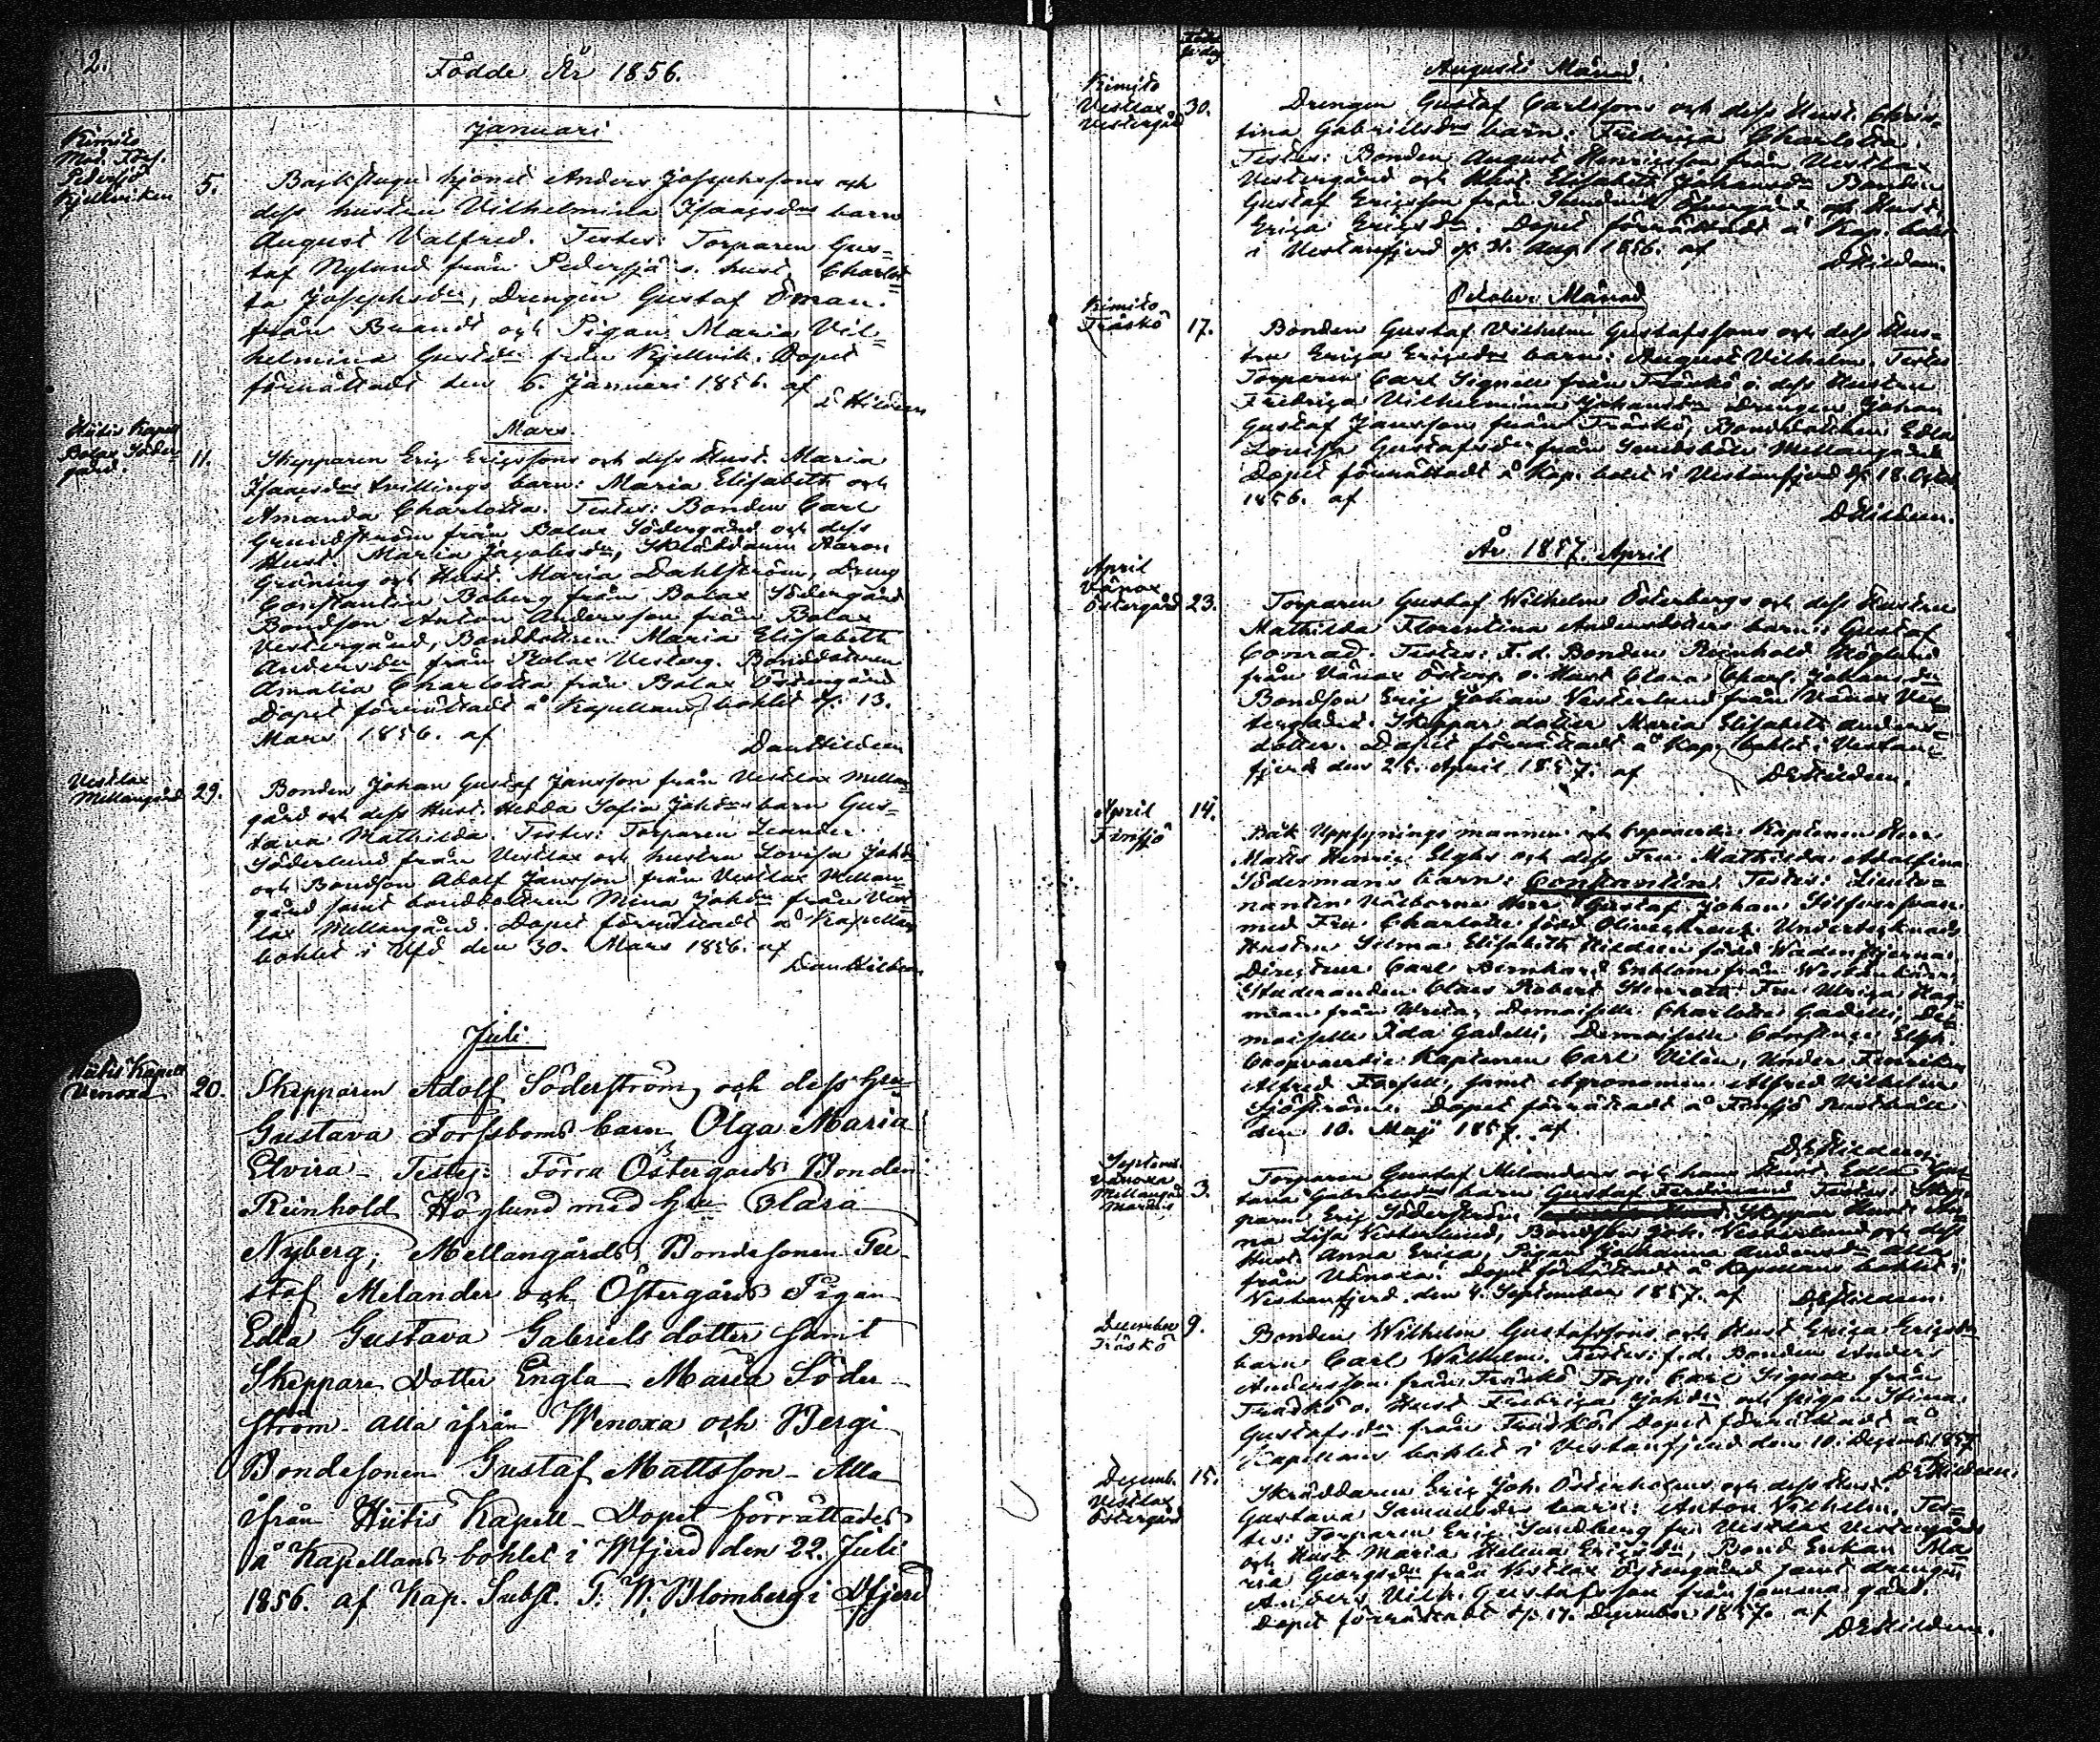 2.
Födde År 1856.
Januari
Kimito
Mod. Förs.
Pedersjö
Kjellviken
5.
Backstugu hjonet Anders Josephssons och
dess hustru Vilhelmina Isaacsdrs barn
August Valfred. Testes: Torparen Gus=
taf Nylund från Pedersjö o. hust. Charlot=
ta Josephsdr, Drengen Gustaf Öman
från Brandt och Pigan Maria Vil=
helmina Gustdr från Kjellvik. Dopet
förrättadt den 6. Januari 1856. af
D Hildeen
Mars
Hitis Kapell
Bolax Söder=
gård
11.
Skepparen Eric Ericssons och dess Hust. Maria
Isaacsdrs tvillings barn: Maria Elisabeth och
Amanda Charlotta. Testes: Bonden Carl
Grundström från Bolax Södergård och dess
Hust. Maria Jacobsdr, Skräddaren Aaron
Gröning och Hust. Maria Dahlström, Dreng
Constantin Boberg från Bolax Södergård
Bondson Anton Andersson från Bolax
Vestergård, Bonddottren Maria Elisabeth
Andersdr från Bolax Vesterg. Bonddottren
Amalia Charlotta från Bolax Östergård
Dopet förrättadt å Kapellans bohlet d. 13.
Mars 1856. af
Dan Hildeen
Vestlax
Mellangård
29.
Bonden Johan Gustaf Jansson från Vestlax Mellan=
gård och dess Hust. Hedda Sofia Johdrs barn Gus=
tava Mathilda. Testes: Torparen Leander
Söderlund från Vestlax och hustru Lovisa Johdr
och Bondson Adolf Jansson från Vestlax Mellan=
gård samt bonddottren Mina Johdr från Vest=
lax Mellangård. Dopet förrättadt å Kapellans
bohlet i Vfd den 30. Mars 1856. af
Dan Hildeen
Juli
Hitis Kapell
Venoxa
20.
Skepparen Adolf Söderström och dess Hu
Gustava Forssboms barn Olga Maria
Elvira - Testes: Förra Östergårds Bonden
Reinhold Höglund med Hu Clara
Nyberg; Mellangårds Bondesonen Gu-
staf Melander och Östergårds Pigan
Edla Gustava Gabriels dotter samt
Skeppare Dotter Engla Maria Söder-
ström - alla ifrån Wenoxa och Bergi
Bondesonen Gustaf Mattsson - Alla
ifrån Hitis Kapell - Dopet förrättades
å Kapellans bohlet i Wfjerd den 22. Juli
1856. af Kap. Subst. T. W. Blomberg i Dfjerd
Augusti Månad.
Kimito
Vestlax
Vestergård
30.
Drengen Gustaf Carlssons och dess Hust. Chris=
tina Gabrielsdrs barn: Fredrica Charlotta.
Testes: Bonden August Henricsson från Vestlax
Vestergård och Hust. Elisabeth Johansdr Bonden
Gustaf Ericsson från och Hust.
Erica Ericsdr. Dopet förrättadt å Kap. bolet
i Vestanfjerd d. 31. Aug. 1856. af
D Hildeen.
October Månad
Kimito
Träskö
17.
Bonden Gustaf Vilhelm Gustafssons och dess Hus=
tru Erica Ericsdrs barn: August Vilhelm. Testes
Torparen Carl Signell från Träskö o. dess Hustru
Fredrica Vilhelmina Johansdr Drengen Johan
Gustaf Jansson från Träskö, Bonddottren Edla
Lovisa Gustafsdr från Smedsböle Mellangård
Dopet förrättadt å Kap. bolet i Vestanfjerd d. 18. Octob.
1856. af
D Hildeen.
År 1857. April
April
Vänoxa
Östergård
23.
Torparen Gustaf Wilhelm Österbergs och dess Hustru
Mathilda Florentina Andersdotters barn: Gustaf
Conrad. Testes: F. d. Bonden Reinhold Höglund
från Vänox Österg. o. Hust Clara Charl. Johansdr
Bondson Eric Johan Vesterlund från Vänox Ves=
tergård. Skeppar dotter Maria Elisabeth Anders=
dotter. Dopet förrättadt å Kap. bohlet i Vestan=
fjerd den 25. April 1857. af
DE Hildeen.
April
Finnsjö
14.
Båk Uppsynings mannen och Coopvaerdie Kaptenen Herr
Matts Henric Elghs och dess Fru Mathilda Adolfina
Södermans barn: Constantin Testes: Lieute=
nanten Välborne Herr Gustaf Johan Silfversvan
med Fru Charlotte född Olivecreutz. Undertecknads
Hustru Selma Elisabeth Hildeen född Wadenstjerna.
Directeur Carl Bernhard Enblom från
Studeranden Claes Robert Fru Ulrica Hag=
man från Demoiselle Charlotte Gadelli, De=
moiselle Ida Gadelli, Demoiselle Constance Elgh.
Coopvaerdie Kaptenen Carl Vilén, Under
Alfred Forsell, samt Agronomen Alfred Vilhelm
Sjöström. Dopet förrättadt å Finnsjö Rusthåll
den 10. Maj 1857. af
DE Hildeen.
Septemb.
Vänoxa
Mellangård
3.
Torparen Gustaf Melanders och hans Hust Edla Gus=
tava Gabrielsdrs barn Gustaf Ferdinand Testes: Skep=
paren Eric Söderström Skeppar Hust. An=
na Lisa Vesterlund, Bondson Joh. Vesterlund och dess
Hust. Anna Erica, Pigan Johanna Andersdr alla
från Vänoxa. Dopet förrättadt å Kapellans bohlet i
Vestanfjerd den 4. September 1857. af DE Hildeen.
December
Träskö
9.
Bonden Wilhelm Gustafssons och Hust Erica Ericsdr
barn Carl Wilhelm. Testes: f.d. Bonden Anders
Andersson från Träskö Torp. Carl Signell från
Träskö o. Hust Fredrica Johdr och pigan Stina
Gustafsdr från Träskö. Dopet förrättadt å
Kapellans bohlet i Vestanfjerd den 10. Decemb. 1857
DE Hildeen.
Decemb.
Vestlax
Östergård
15.
Skräddaren Eric Joh. Österholms och dess Hust.
Gustava Samuelsdrs barn: Anton Vilhelm. Tes=
tes: Torparen Eric Sandberg fr. Vestlax Vestergård
och Hust. Maria Helena Ericsdr, Bond Enkan Ma
ria Georgsdr från Vestlax Östergård samt drengen
Anders Vilh. Gustafsson från samma gård.
Dopet förrättadt d. 17. December 1857. af
DE Hildeen.